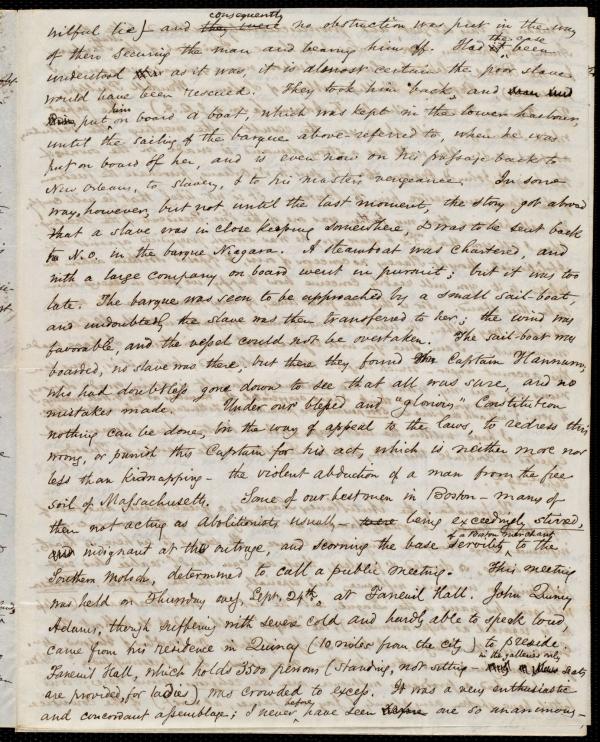 wilful lie] – and consequently no obstruction was put in the way
of their securing the man and bearing him off. Had the case been
understood as it was, it is almost certain the poor slave
would have been rescued. They took him back, and
put him on board a boat, which was kept in the lower harbour,
until the sailing of the barque above-referred to, when he was
put on board of her, and is even now on his passage back to
New Orleans, to slavery, & to his master's vengeance. In some
way, however, but not until the last moment, the story got abroad
that a slave was in close keeping somewhere, & was to be sent back
to N.O. in the barque Niagara. A steamboat was chartered, and
with a large company on board went in pursuit; but it was too
late. The barque was seen to be approached by a small sail-boat
and undoubtedly the slave was then transferred to her; the wind was
favorable, and the vessel could not be overtaken. The sail-boat was
boarded, no slave was there, but there they found Captain Hannum,
who had doubtless gone down to see that all was sure, and no
mistakes made. Under our blessed and "glorious" Constitution
nothing can be done, in the way of appeal to the laws, to redress this
wrong, or punish this Captain for his act, which is neither more nor
less than kidnapping – the violent abduction of a man from the free
soil of Massachusetts. Some of our best men in Boston – many of
them not acting as Abolitionists usually – being exceedingly stirred,
indignant at the outrage, and scorning the base servility of a Boston merchant to the
Southern Moloch, determined to call a public meeting. This meeting
was held on Thursday eveg. Sept. 24th, at Faneuil Hall. John Quincy
Adams, though suffering with severe cold and hardly able to speak loud,
came from his residence in Quincy (10 miles from the city) to preside.
Faneuil Hall, which holds 3500 persons (standing, not sitting – in the galleries only seats
are provided, for ladies), was crowded to excess. It was a very enthusiastic
and concordant assemblage; I never before have seen one so unanimous,